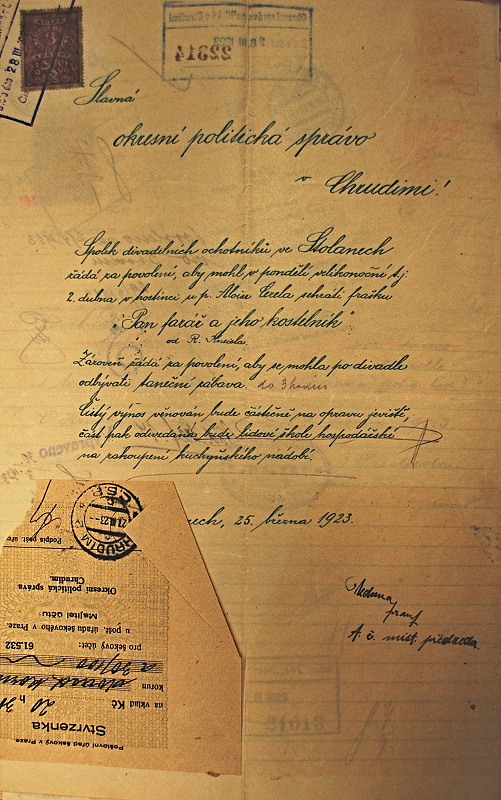 28 III
22314
Slavná
okresní politická správo
v Chrudimi!
Spolek divadelních ochotníků ve Stolanech
žádá za povolení, aby mohl v pondělí velikonoční t.j.
2. dubna v hostinci u p. Aloise sehráti frašku
„Pan farář a jeho kostelník“
od R.
Zároveň žádá za povolení, aby se mohla po divadle
odbývati taneční zábava. do 3 hodin
Čistý výnos věnován bude částečně na opravu jeviště,
část pak odvedena bude lidové škole hospodářské
na zakoupení kuchyňského nádobí.
nech, 25. března 1923.
místo. předseda
Poštovní úřad šekový v Praze.
Stvrzenka
na vklad Kč 20 h
korun
pro šekový účet: 61.532
u pošt. úřadu šekového v Praze.
Majitel účtu:
Okresní politická správa
Chrudim.
Podpis pošt. úře
CHRUDIM 2
Č.S.P.